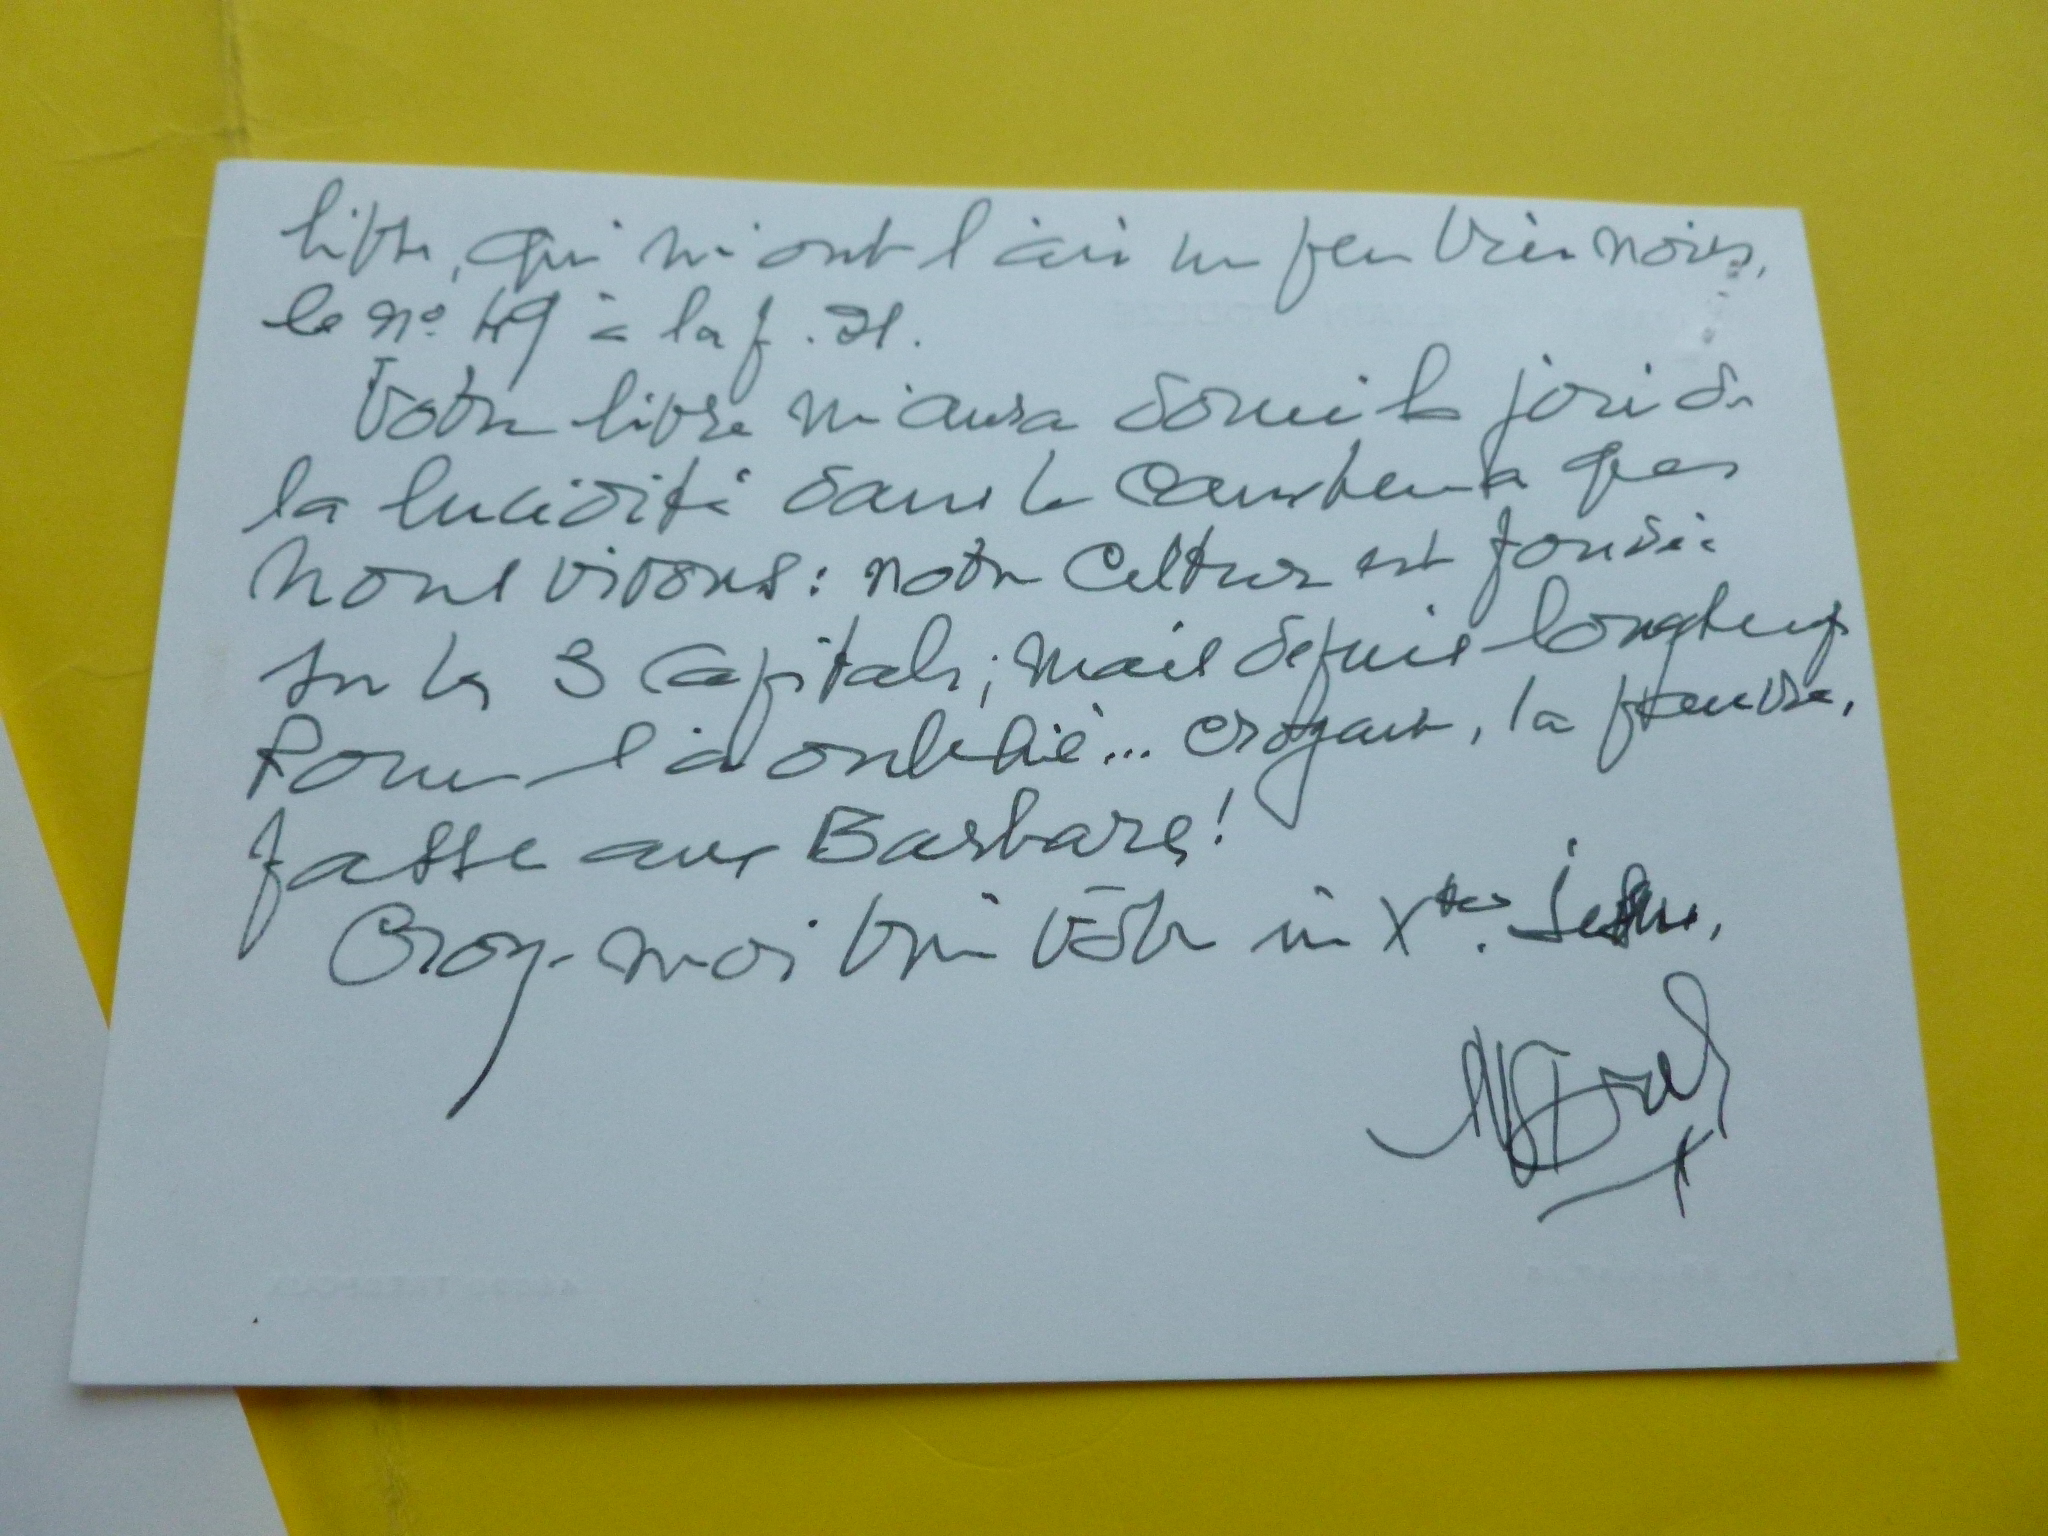 livre, qui m'ont l'air un peu très noirs,
le n° 49 à la p. 21.
Votre livre m'aura donné la joie de
la lucidité dans le que
nous vivons : notre culture est fondée
sur les 3 capitales ; mais depuis longtemps
Rome l'a oublié... croyant, la pauvre,
face aux Barbares !
Croyez-moi bien vôtre in Xto Jesu,